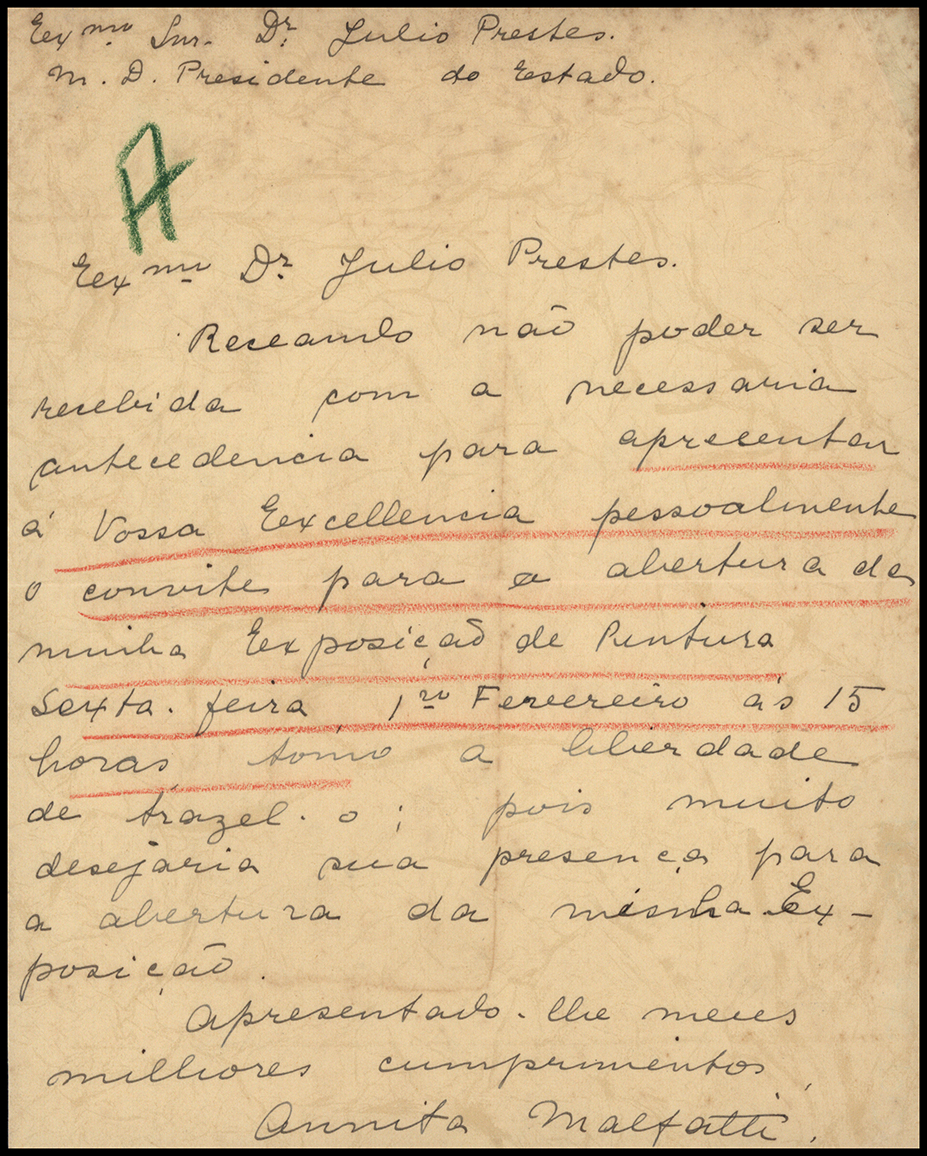 Eexmo Snr. Dr. Julio Prestes.
M. D. Presidente do Estado.
A
Eexmo Dr. Julio Prestes.
Receando não poder ser
recebida com a necessaria
antecedencia para apresentar
á Vossa Eexcellencia pessoalmente
o convite para a abertura da
minha Eexposição de Pintura
Sexta-feira 1ro Fevereiro ás 15
horas tomo a liberdade
de trazel-o; pois muito
desejaria sua presença para
a abertura da minha Ex-
posição.
Apresentado-lhe meus
milhores cumprimentos,
Annita Malfatti.